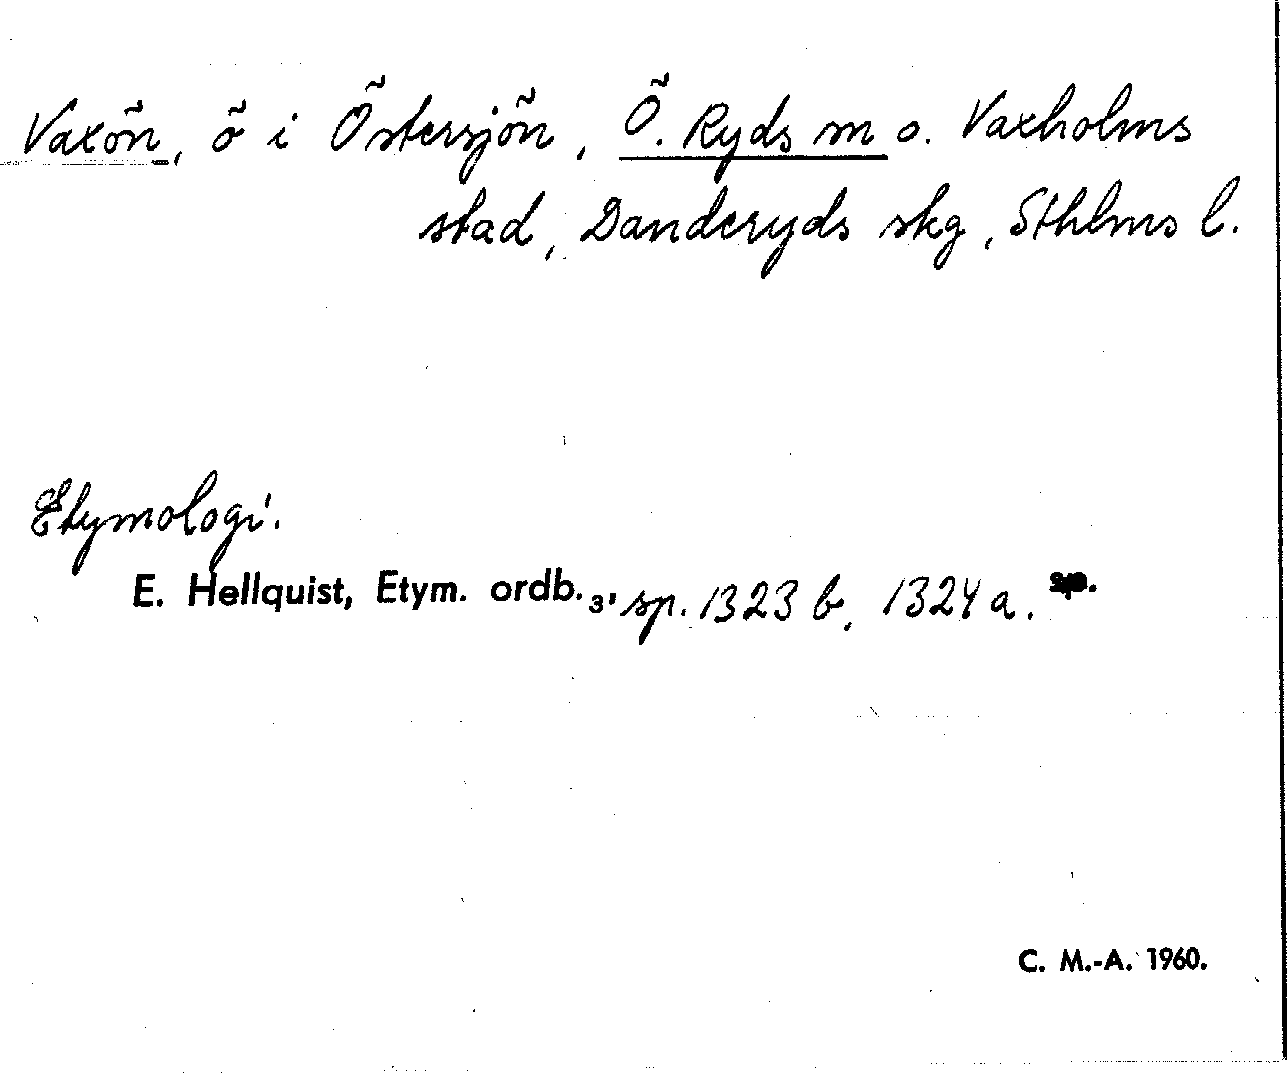 Vaxön, ö i Östersjön, Ö. Ryds sn o. Vaxholms
stad, Danderyds skg, Sthlms l.
Etymologi.
E. Hellquist, Etym. ordb.₃, sp. 1323 b, 1324 a.
C. M.-A. 1960.